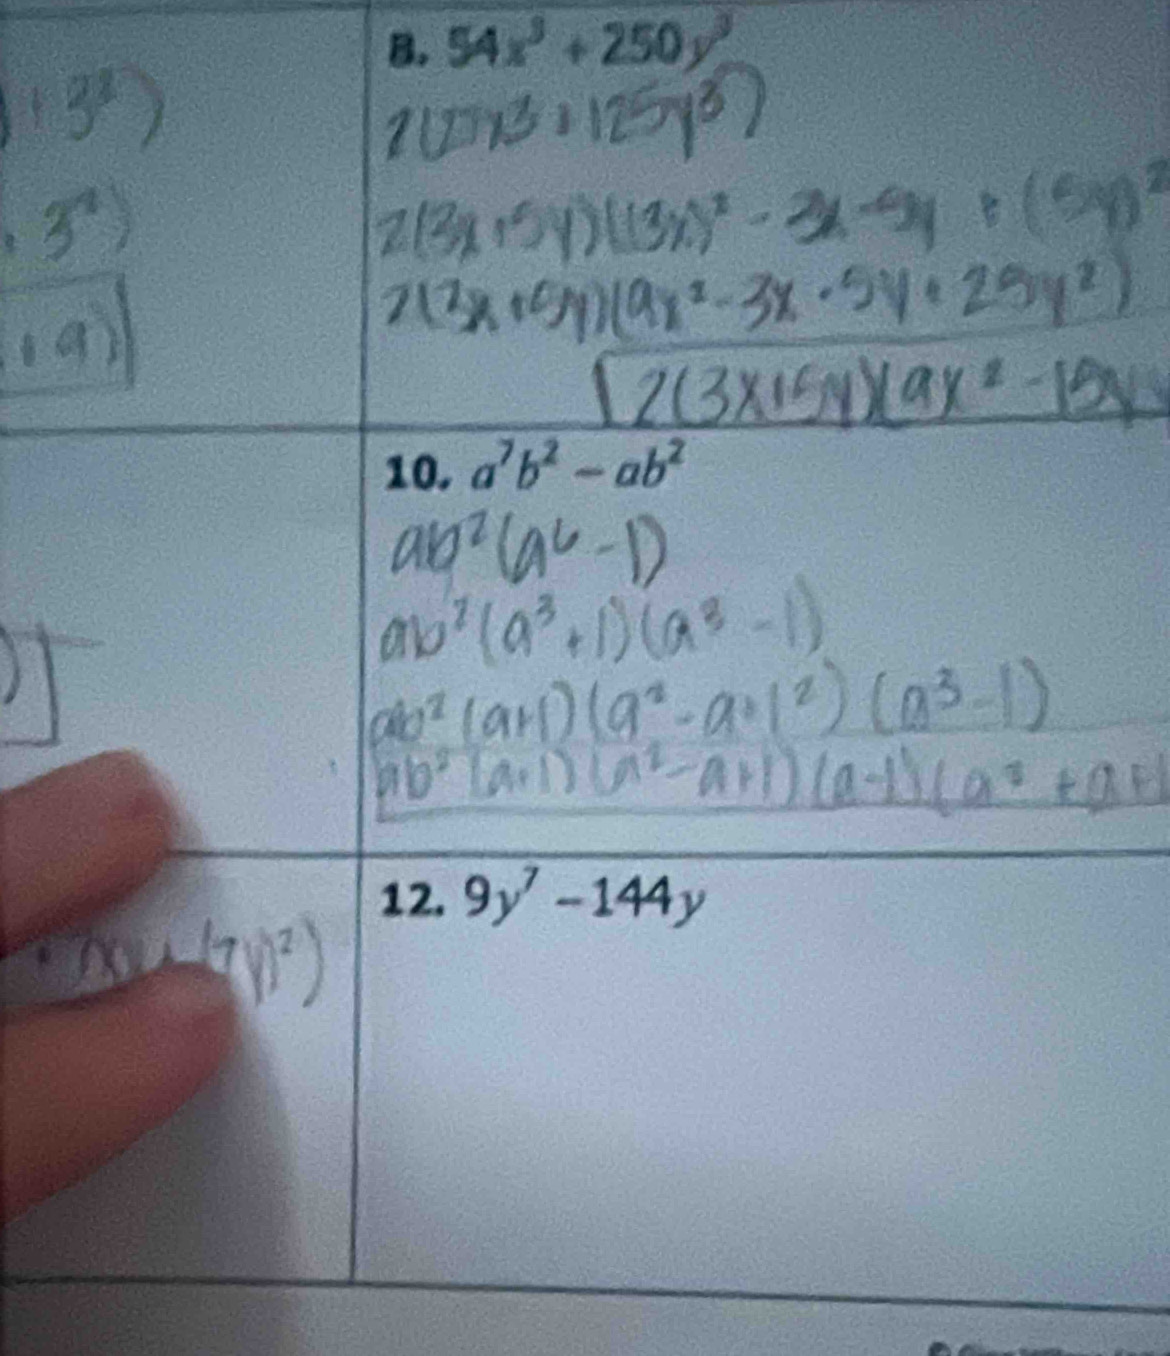 8. 54x³ + 250y³
+ 3²)
2(27x3 + 125y³)
3²)
2(3x+5y)((3x)² - 3x·5y + (5y)²
2(3x+5y)(9x² - 3x · 5y + 25y²)
+ 9)
2(3x+5y)(9x² - 15xy
10. a⁷b² - ab²
ab²(a⁶ - 1)
ab²(a³ + 1)(a³ - 1)
)
ab²(a+1)(a² - a + 1²)(a³ - 1)
ab²(a+1)(a² - a + 1)(a-1)(a² + a + 1
12. 9y⁷ - 144y
(7y)²)